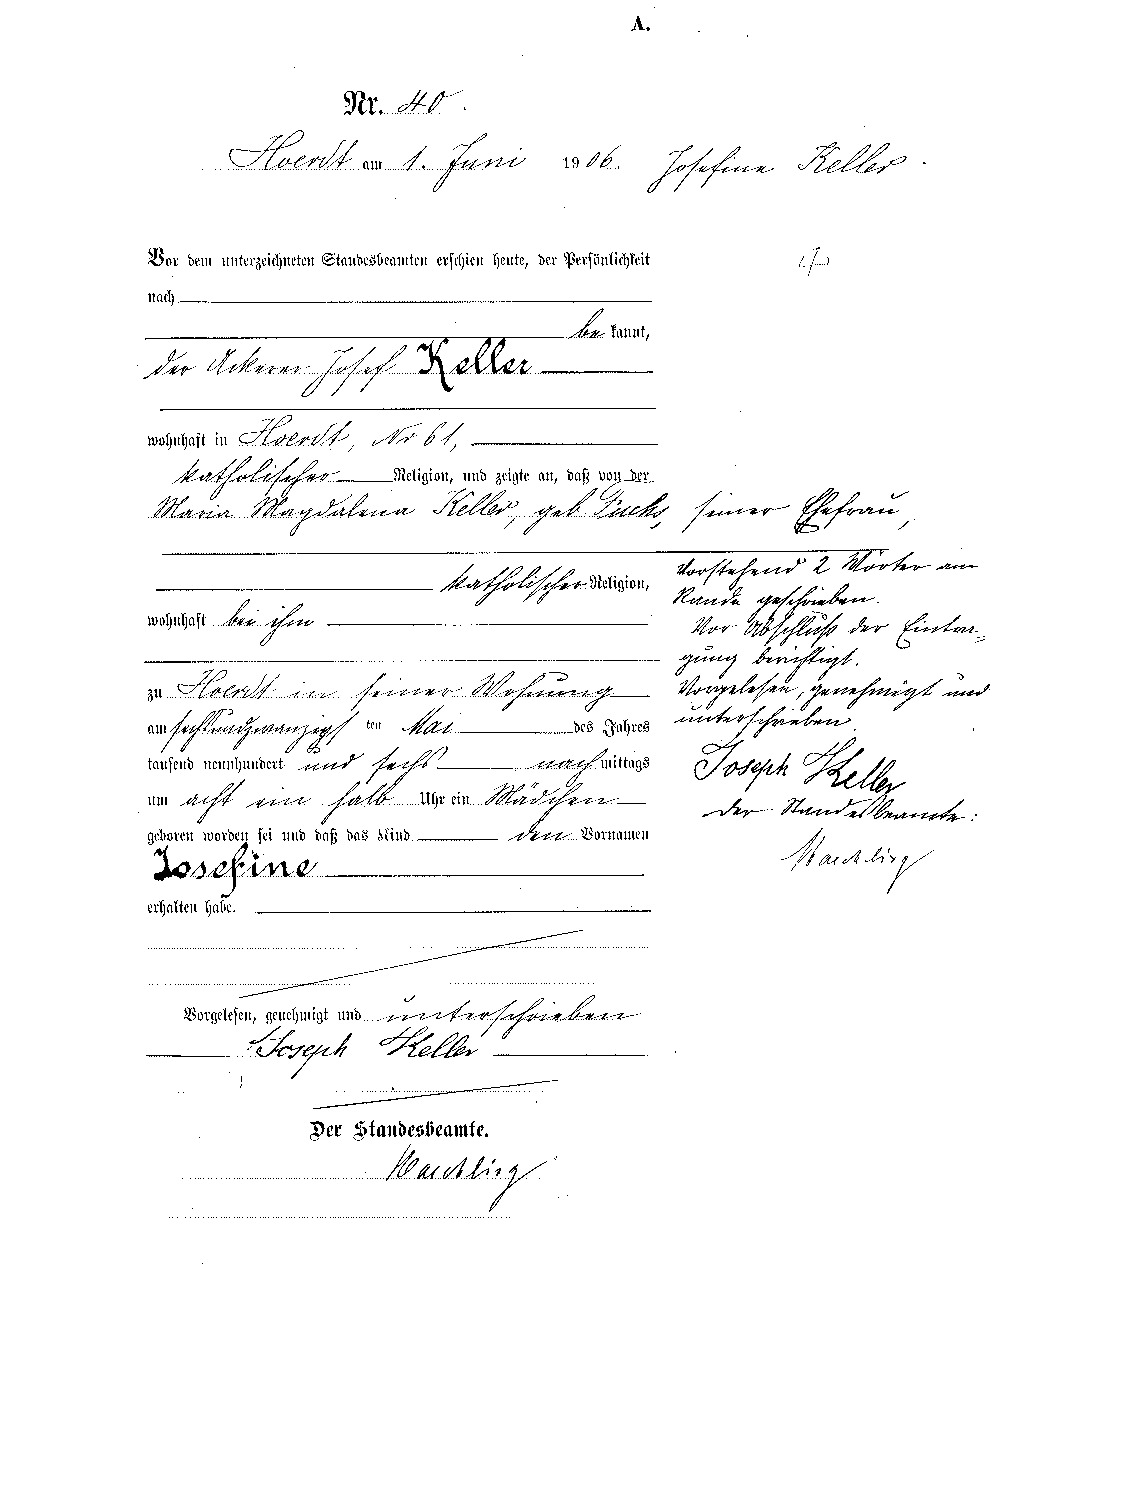 A.
Nr. 40.
Hoerdt am 1. Juni 1906.
Josefine Keller.
Vor dem unterzeichneten Standesbeamten erschien heute, der Persönlichkeit
nach
be kannt,
der Ackerer Josef Keller
wohnhaft in Hoerdt, Nr 61,
katholischer Religion, und zeigte an, daß von der
Maria Magdalena Keller, geb. Fuchs, seiner Ehefrau,
katholischer Religion,
wohnhaft bei ihm
zu Hoerdt in seiner Wohnung
am sechsundzwanzigsten Mai des Jahres
tausend neunhundert und sechs nach mittags
um acht ein halb Uhr ein Mädchen
geboren worden sei und daß das Kind den Vornamen
Josefine
erhalten habe.
Vorgelesen, genehmigt und unterschrieben
Joseph Keller
Der Standesbeamte.
Vorstehend 2 Wörter am
Rande geschrieben.
Vor Abschluß der Eintra-
gung berichtigt.
Vorgelesen, genehmigt und
unterschrieben
Joseph Keller
Der Standesbeamte: